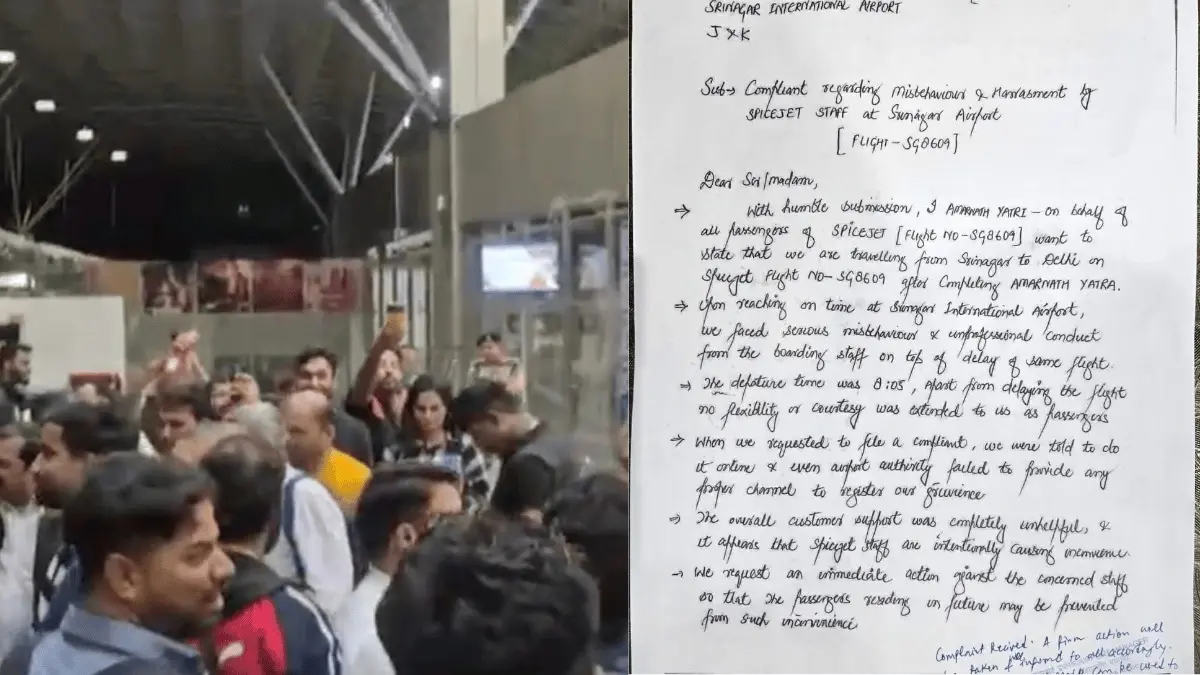 SRINAGAR INTERNATIONAL AIRPORT
J & K
Sub→ Compliant regarding misbehaviour & Harrasment by
SPICEJET STAFF at Srinagar Airport
[FLIGHT-SG8609]
Dear Sir/madam,
⇒ With humble submission, I AMARNATH YATRI - on behalf of
all passengers of SPICEJET [Flight NO-SG8609] want to
state that we are travelling from Srinagar to Delhi on
Spicejet Flight NO-SG8609 after Completing AMARNATH YATRA.
→ Upon reaching on time at Srinagar International Airport,
we faced serious misbehaviour & unprofessional conduct
from the boarding staff on top of delay of same flight.
→ The depature time was 8:05, apart from delaying the flight
no flexiblity or courtesy was extended to us as passengers
→ When we requested to file a compliant, we were told to do
it online & even airport authority failed to provide any
proper channel to register our
⇒ The overall customer support was completely unhelpful, &
it appears that Spicejet staff are intentionlly causing
→ We request an immediate action the concerned staff
so that the passengers in future may be prevented
from such
Complaint Recived. A firm action will
taken & informd to all accordingly.
can be used to